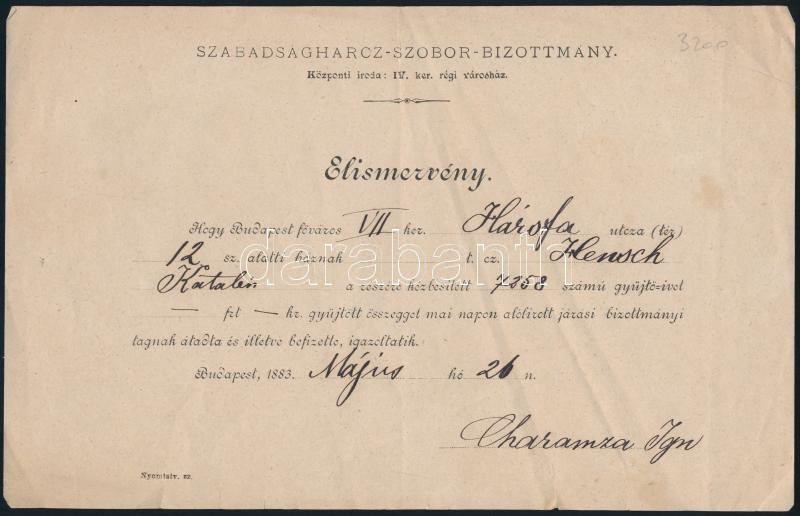 3200
SZABADSÁGHARCZ-SZOBOR-BIZOTTMÁNY.
Központi iroda: IV. ker. régi városház.
Elismervény.
Hogy Budapest főváros VII ker. Hársfa utcza (tér)
12 sz. alatti háznak t. cz. Hensch
Katalin a részére kézbesített 7358 számú gyüjtőivet
— frt — kr. gyüjtött összeggel mai napon alólirott járási bizottmányi
tagnak átadta és illetve befizette, igazoltatik.
Budapest, 1883. Május hó 26 n.
Charamza Ign
Nyomtatv. sz.
darabanth.com